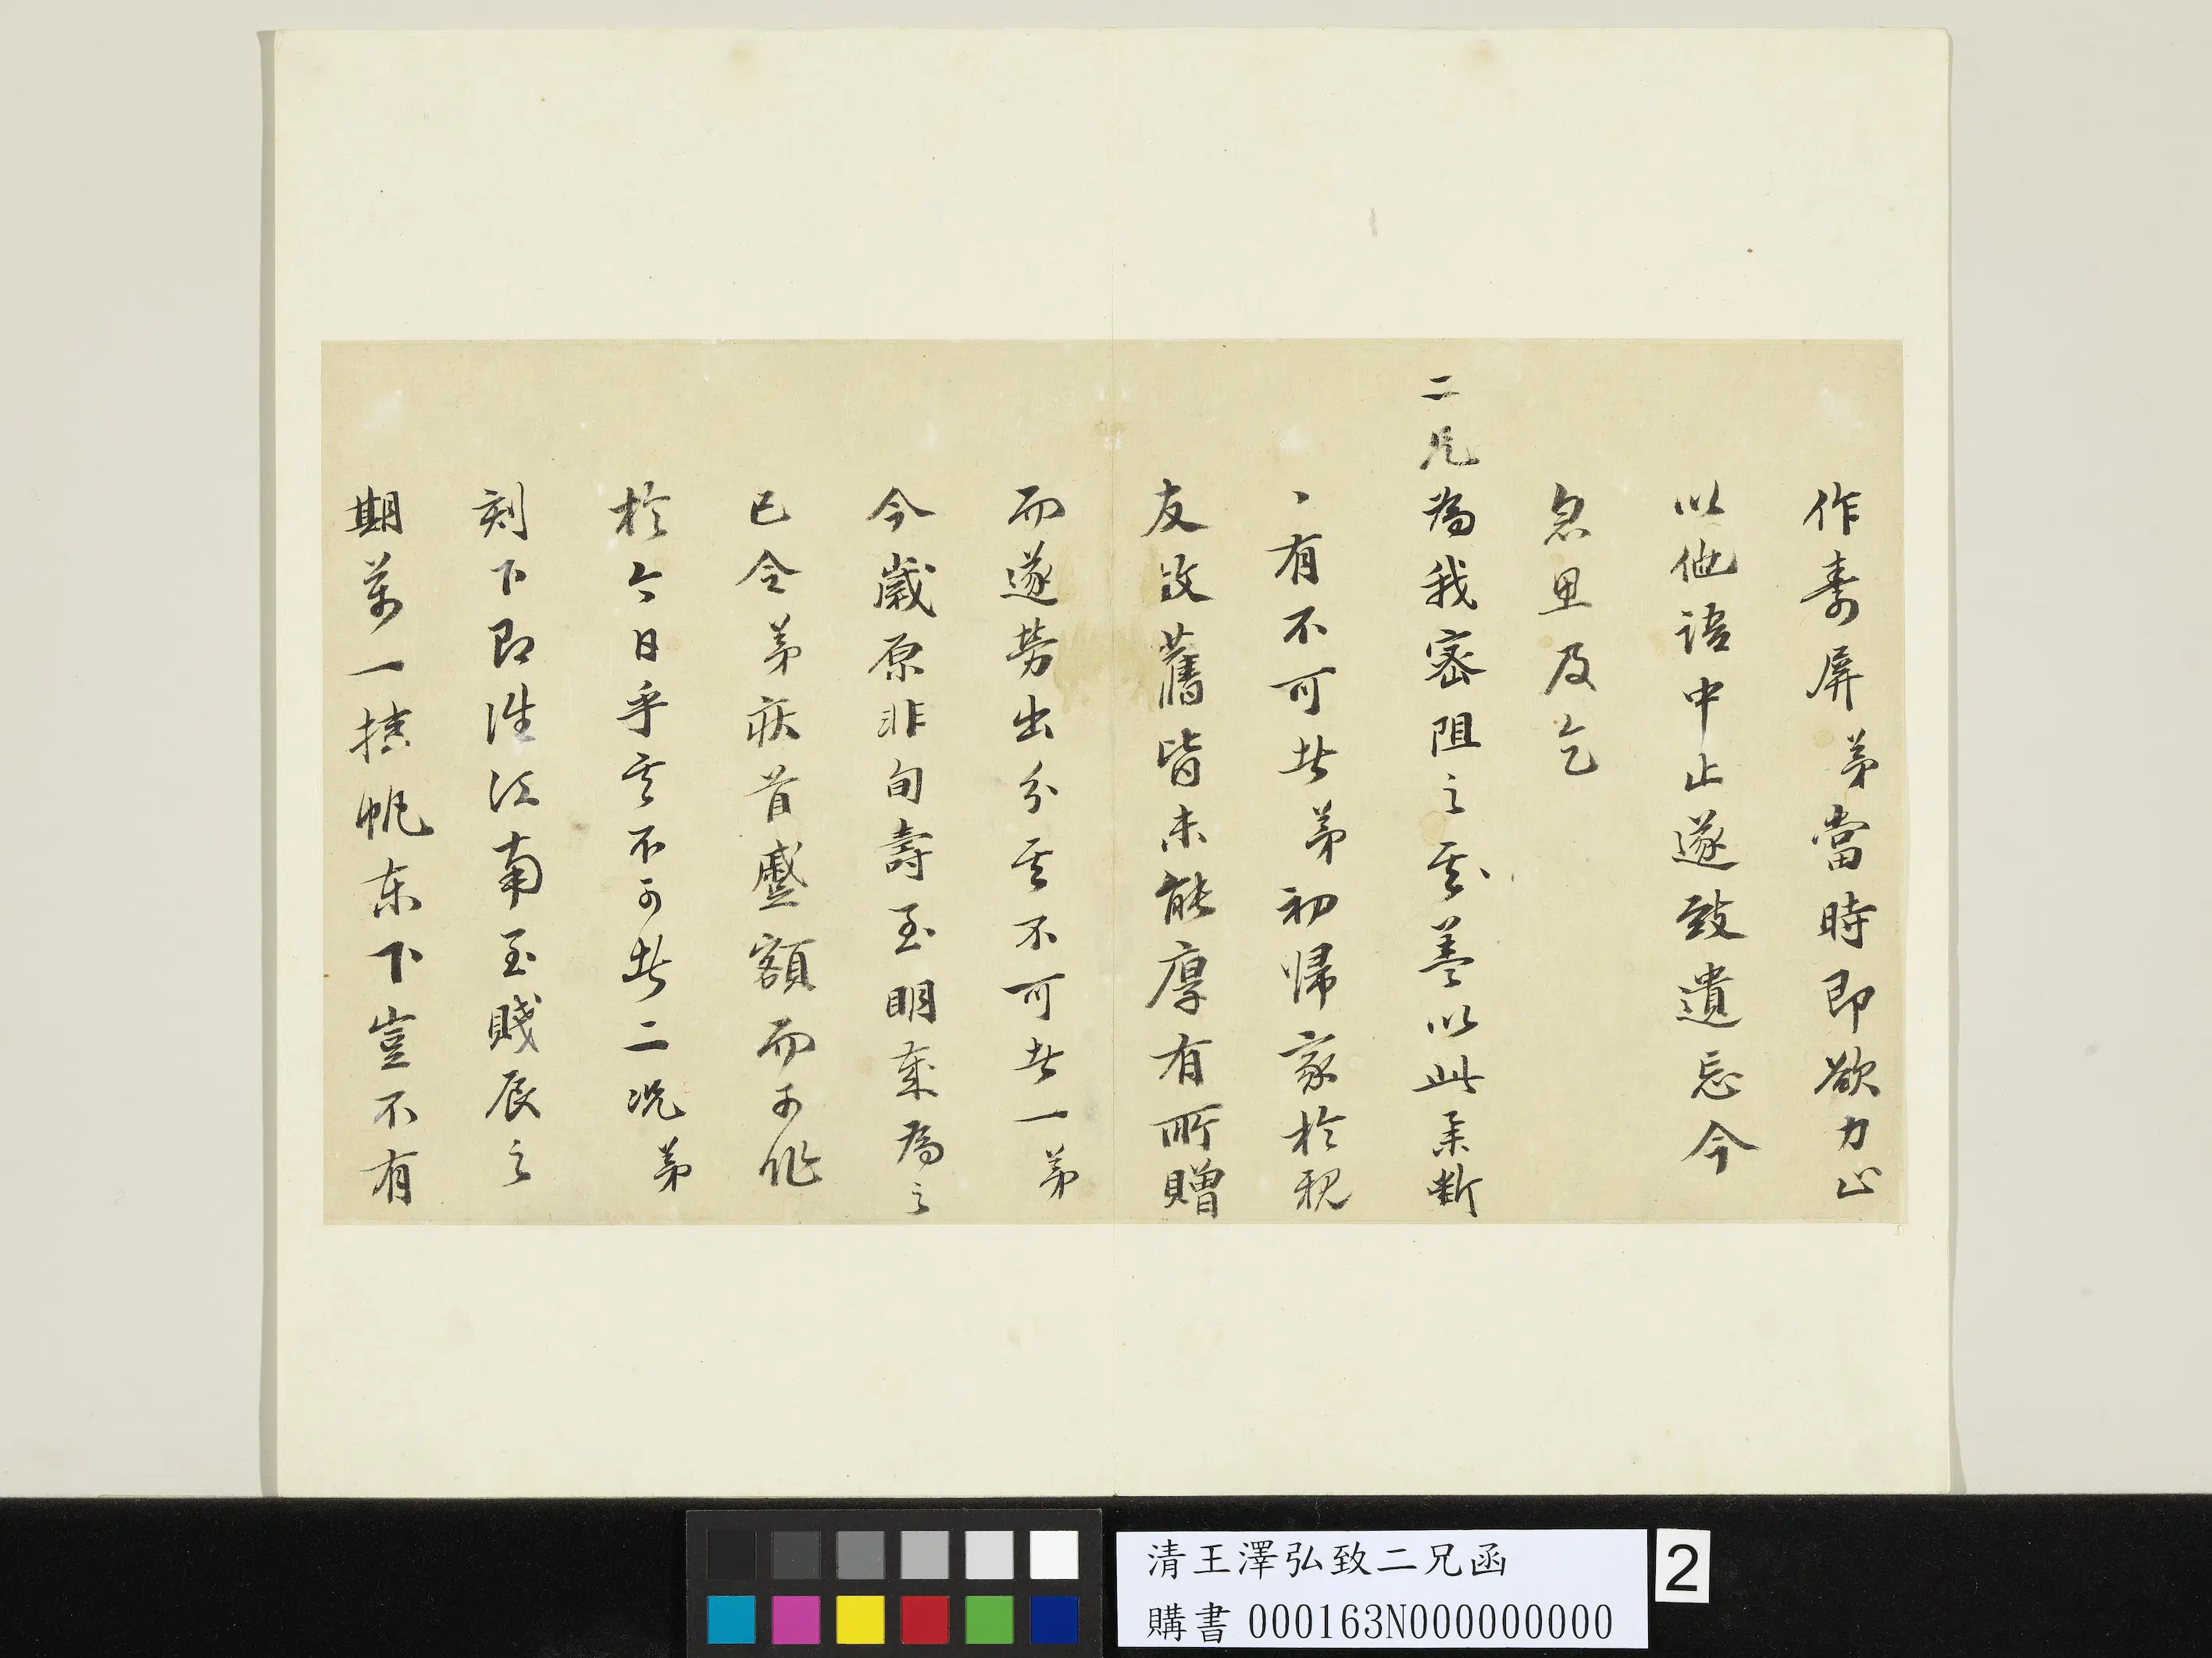 作壽屏弟當時即欲力止
以他語中止遂致遺忘今
忽思及乞
二兄為我密阻之其盖以此舉斷
、有不可者弟初歸家於親
友故舊皆未能厚有所贈
而遂勞出分其不可者一弟
今歲原非旬壽至明歲為之
已令弟疾首蹙額而可作
於今日乎其不可者二况弟
刻下即往江南至賤辰之
期萬一挂帆東下豈不有
清王澤弘致二兄函
購書 000163N000000000
2